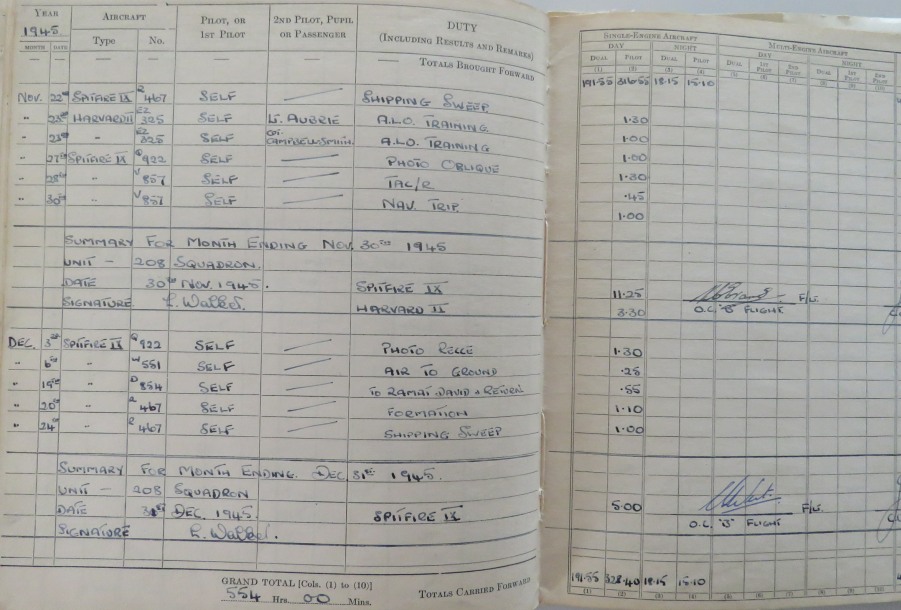 YEAR AIRCRAFT PILOT, OR 2ND PILOT, PUPIL DUTY
1945 Type No. 1ST PILOT OR PASSENGER (INCLUDING RESULTS AND REMARKS)
MONTH DATE
— — — — — — TOTALS BROUGHT FORWARD
NOV. 22ND SPITFIRE IX R 467 SELF SHIPPING SWEEP
" 23RD HARVARD II EZ 325 SELF LT. AUBRIE A.L.O. TRAINING
" 23RD " EZ 325 SELF CPT. CAMPBELL-SMITH. A.L.O. TRAINING
" 27TH SPITFIRE IX 922 SELF PHOTO OBLIQUE
" 28TH " V 857 SELF TAC/R
" 30TH " V 857 SELF NAV. TRIP.
SUMMARY FOR MONTH ENDING NOV. 30TH 1945
UNIT - 208 SQUADRON.
DATE 30TH NOV. 1945. SPITFIRE IX
SIGNATURE HARVARD II
DEC. 3RD SPITFIRE IX 922 SELF PHOTO RECCE
" 6TH " W 551 SELF AIR TO GROUND
" 19TH " D 854 SELF TO RAMAT DAVID & RETURN
" 20TH " R 467 SELF FORMATION
" 24TH " R 467 SELF SHIPPING SWEEP
SUMMARY FOR MONTH ENDING. DEC. 31ST 1945.
UNIT - 208 SQUADRON
DATE 31ST DEC. 1945. SPITFIRE IX
SIGNATURE
GRAND TOTAL [Cols. (1) to (10)]
554 Hrs. 00 Mins. TOTALS CARRIED FORWARD
SINGLE-ENGINE AIRCRAFT MULTI-ENGINE AIRCRAFT
DAY NIGHT DAY NIGHT
DUAL PILOT DUAL PILOT DUAL 1ST PILOT 2ND PILOT DUAL 1ST PILOT 2ND PILOT
(1) (2) (3) (4) (5) (6) (7) (8) (9) (10)
191·55 316·55 18·15 15·10
1·30
1·00
1·00
1·30
·45
1·00
11·25 F/L.
3·30 O.C. "B" FLIGHT
1·30
·25
·55
1·10
1·00
5·00 F/L.
O.C. "B" FLIGHT
191·55 328·40 18·15 15·10
(1) (2) (3) (4) (5) (6) (7) (8) (9) (10)